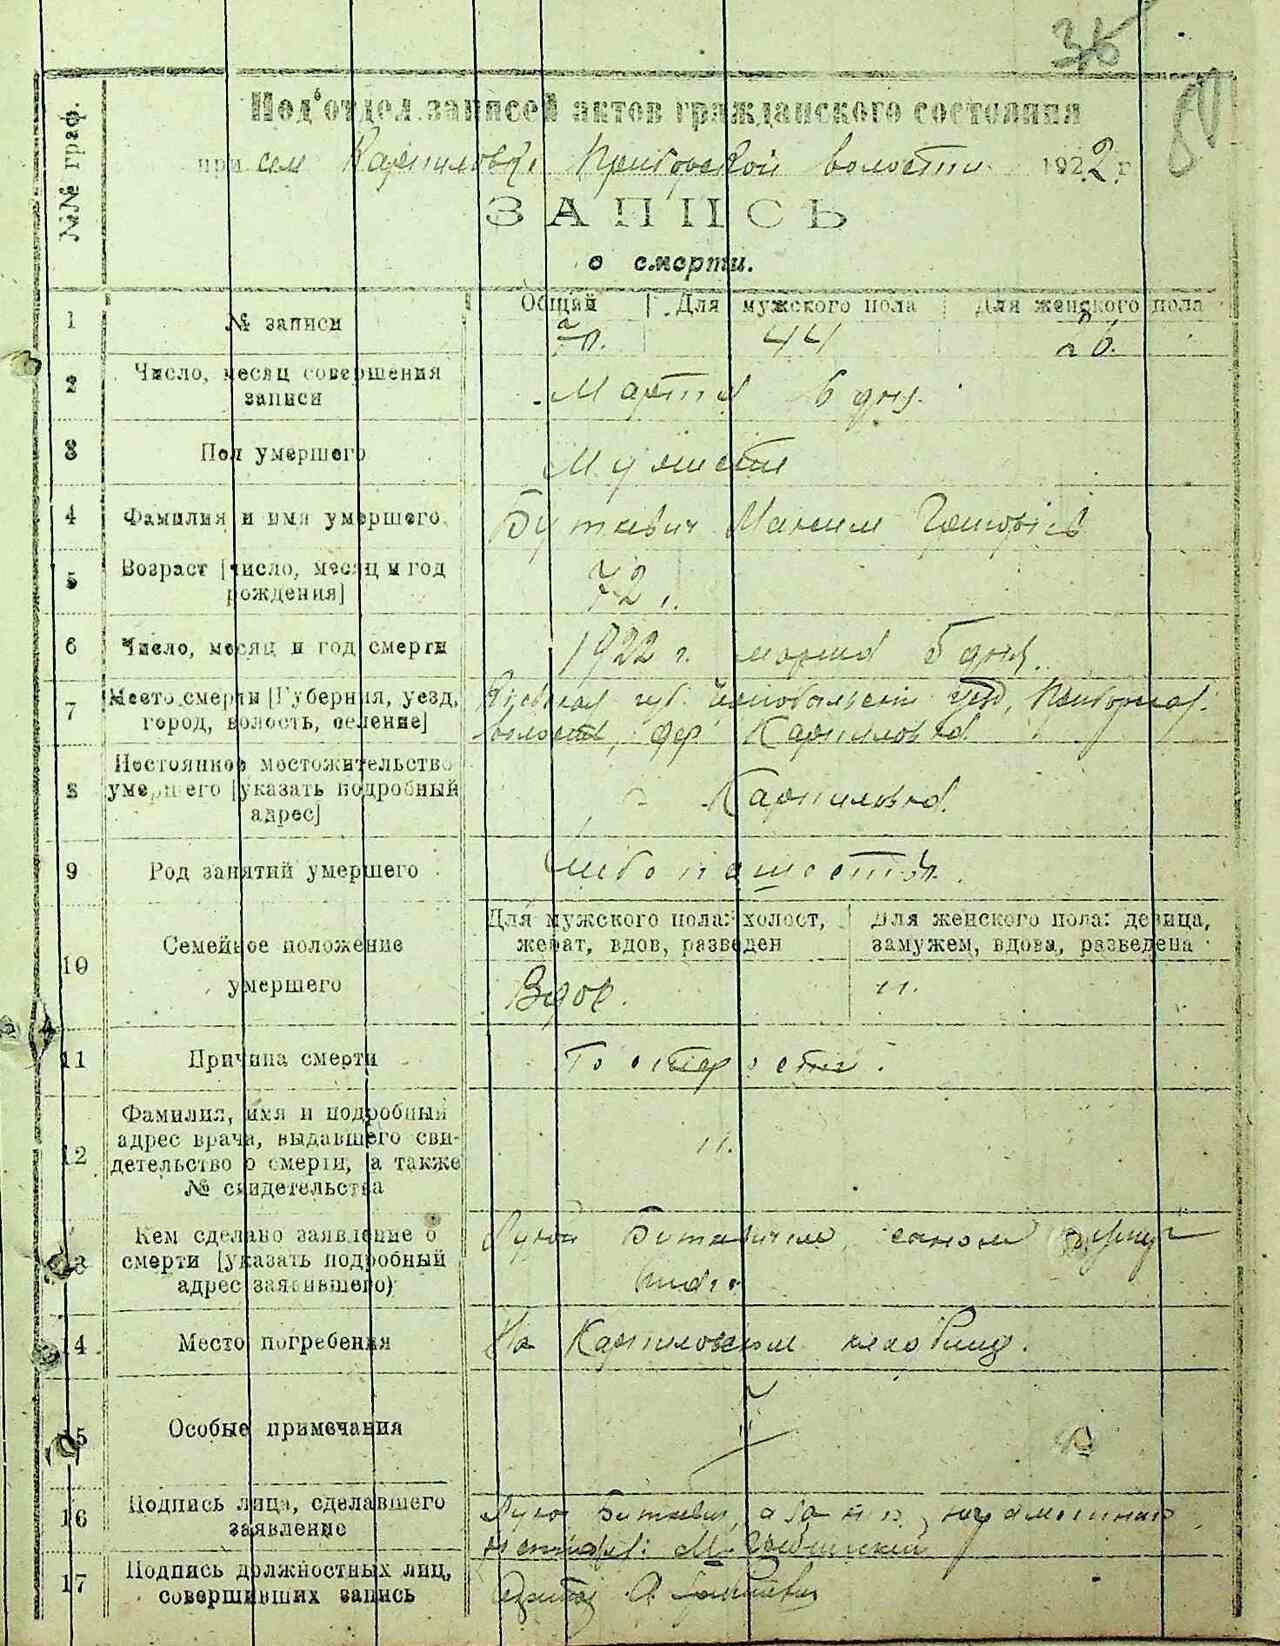 36
№№ граф.
Под'отдел записей актов гражданского состояния
при сел Карпиловка Приборской волости 1922 г.
ЗАПИСЬ
о смерти.
1 № записи Общий Для мужского пола Для женского пола
70. 44 26.
2 Число, месяц совершения записи
Марта 6 дня.
3 Пол умершего
4 Фамилия и имя умершего
Буткевич Максим Григорьев
5 Возраст [число, месяц и год рождения]
72
6 Число, месяц и год смерти
1922 г. марта 5 дня.
7 Место смерти [Губерния, уезд, город, волость, селение]
губ. уезд, Приборская
волость, дер Карпиловка
8 Постоянное местожительство умершего [указать подробный адрес]
Карпиловка.
9 Род занятий умершего
10 Семейное положение умершего
Для мужского пола: холост, женат, вдов, разведен
Для женского пола: девица, замужем, вдова, разведена
Вдов. "
11 Причина смерти
12 Фамилия, имя и подробный адрес врача, выдавшего свидетельство о смерти, а также № свидетельства
".
13 Кем сделано заявление о смерти [указать подробный адрес заявившего)
Буткевичем сыном
14 Место погребения
На Карпиловском кладбище.
15 Особые примечания
16 Подпись лица, сделавшего заявление
Буткевич, а за него неграмотного
17 Подпись должностных лиц, совершивших запись